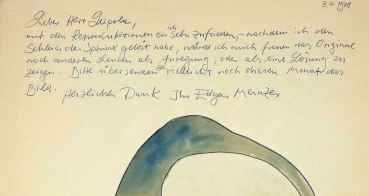 3.4.1978
Lieber Herr
mit den Reproduktionen bin ich sehr zufrieden, – nachdem ich den
Schleier der Sphinx gelöst habe, würde ich mich freuen das Original
noch anderen Leuten als Anregung, oder als eine Lösung zu
zeigen. Bitte übersenden vielleicht noch diesen Monat das
Bild. Herzlichen Dank Ihr Edgar